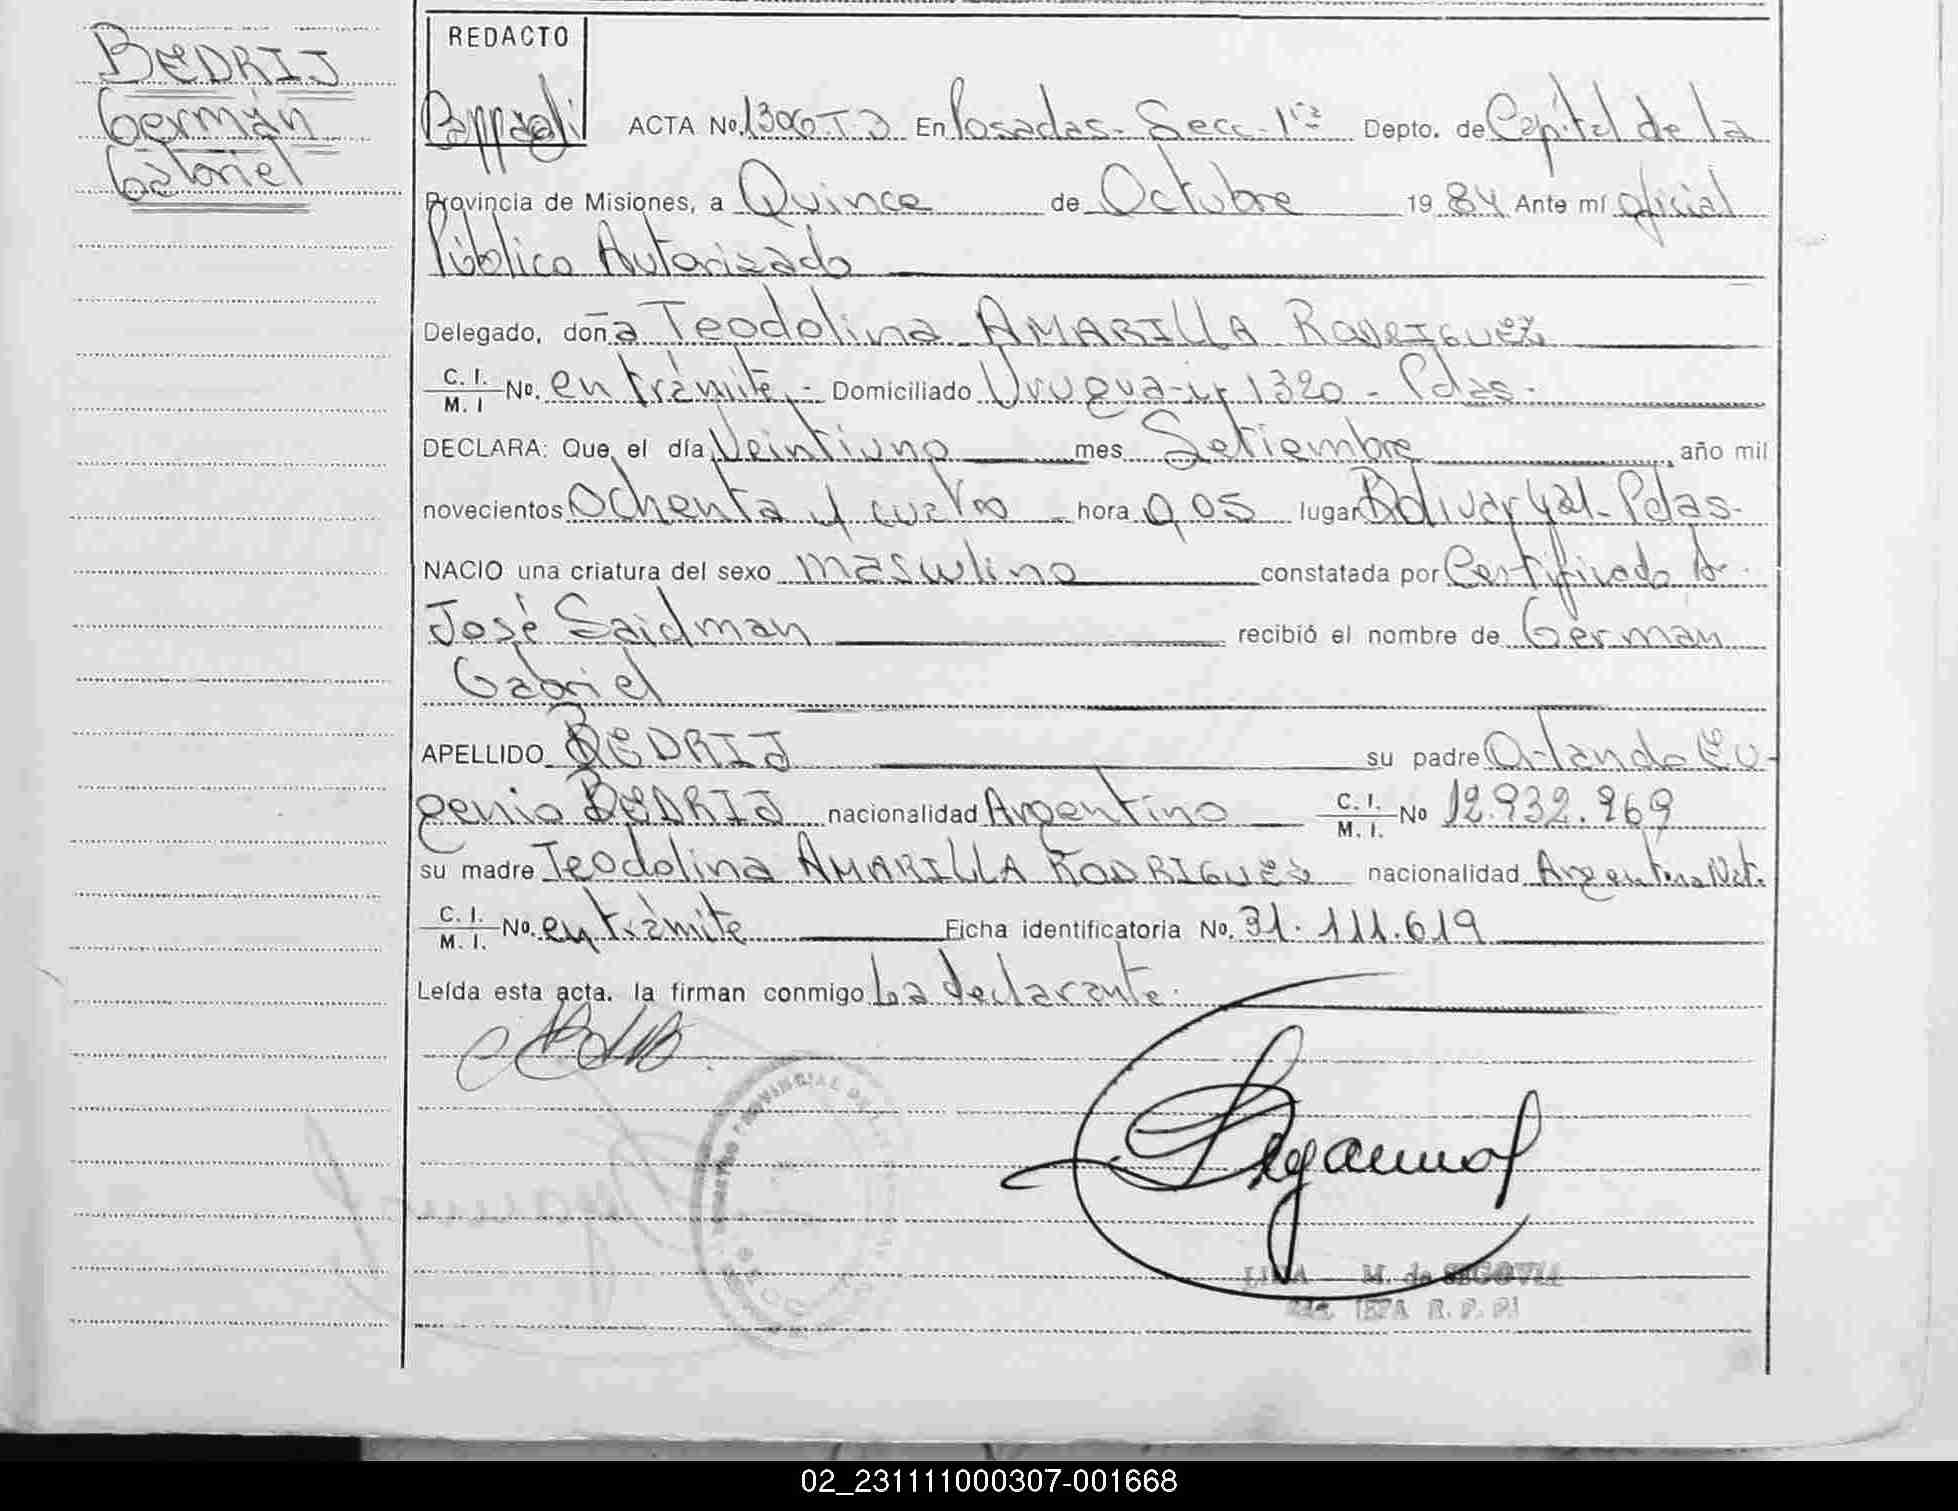 BEDRIJ
Germán
Gabriel
REDACTO
ACTA No. 1306 T 3 En Posadas - Secc. 1ra Depto. de Capital de la
Provincia de Misiones, a Quince de Octubre 19 84 Ante mí oficial
Público Autorizado
Delegado, doña Teodolina AMARILLA RODRIGUEZ
C. I. / M. I No. en trámite - Domiciliado Uruguay 1320 - Pdas.
DECLARA: Que, el día Veintiuno mes Setiembre, año mil
novecientos Ochenta y cuatro hora 9,05 lugar Bolivar y Gal. Pdas.
NACIO una criatura del sexo masculino constatada por Certificado Dr.
José Saidman recibió el nombre de Germán
Gabriel
APELLIDO BEDRIJ su padre Orlando Eu-
genio BEDRIJ nacionalidad Argentino C. I. / M. I. No 12.932.969
su madre Teodolina AMARILLA RODRIGUEZ nacionalidad Argentina Nat.
C. I. / M. I. No. en trámite Ficha identificatoria No. 31.111.619
Leída esta acta, la firman conmigo La declarante.
REGISTRO PROVINCIAL DE LAS
M. de SEGOVIA
R. P. P.
02_231111000307-001668